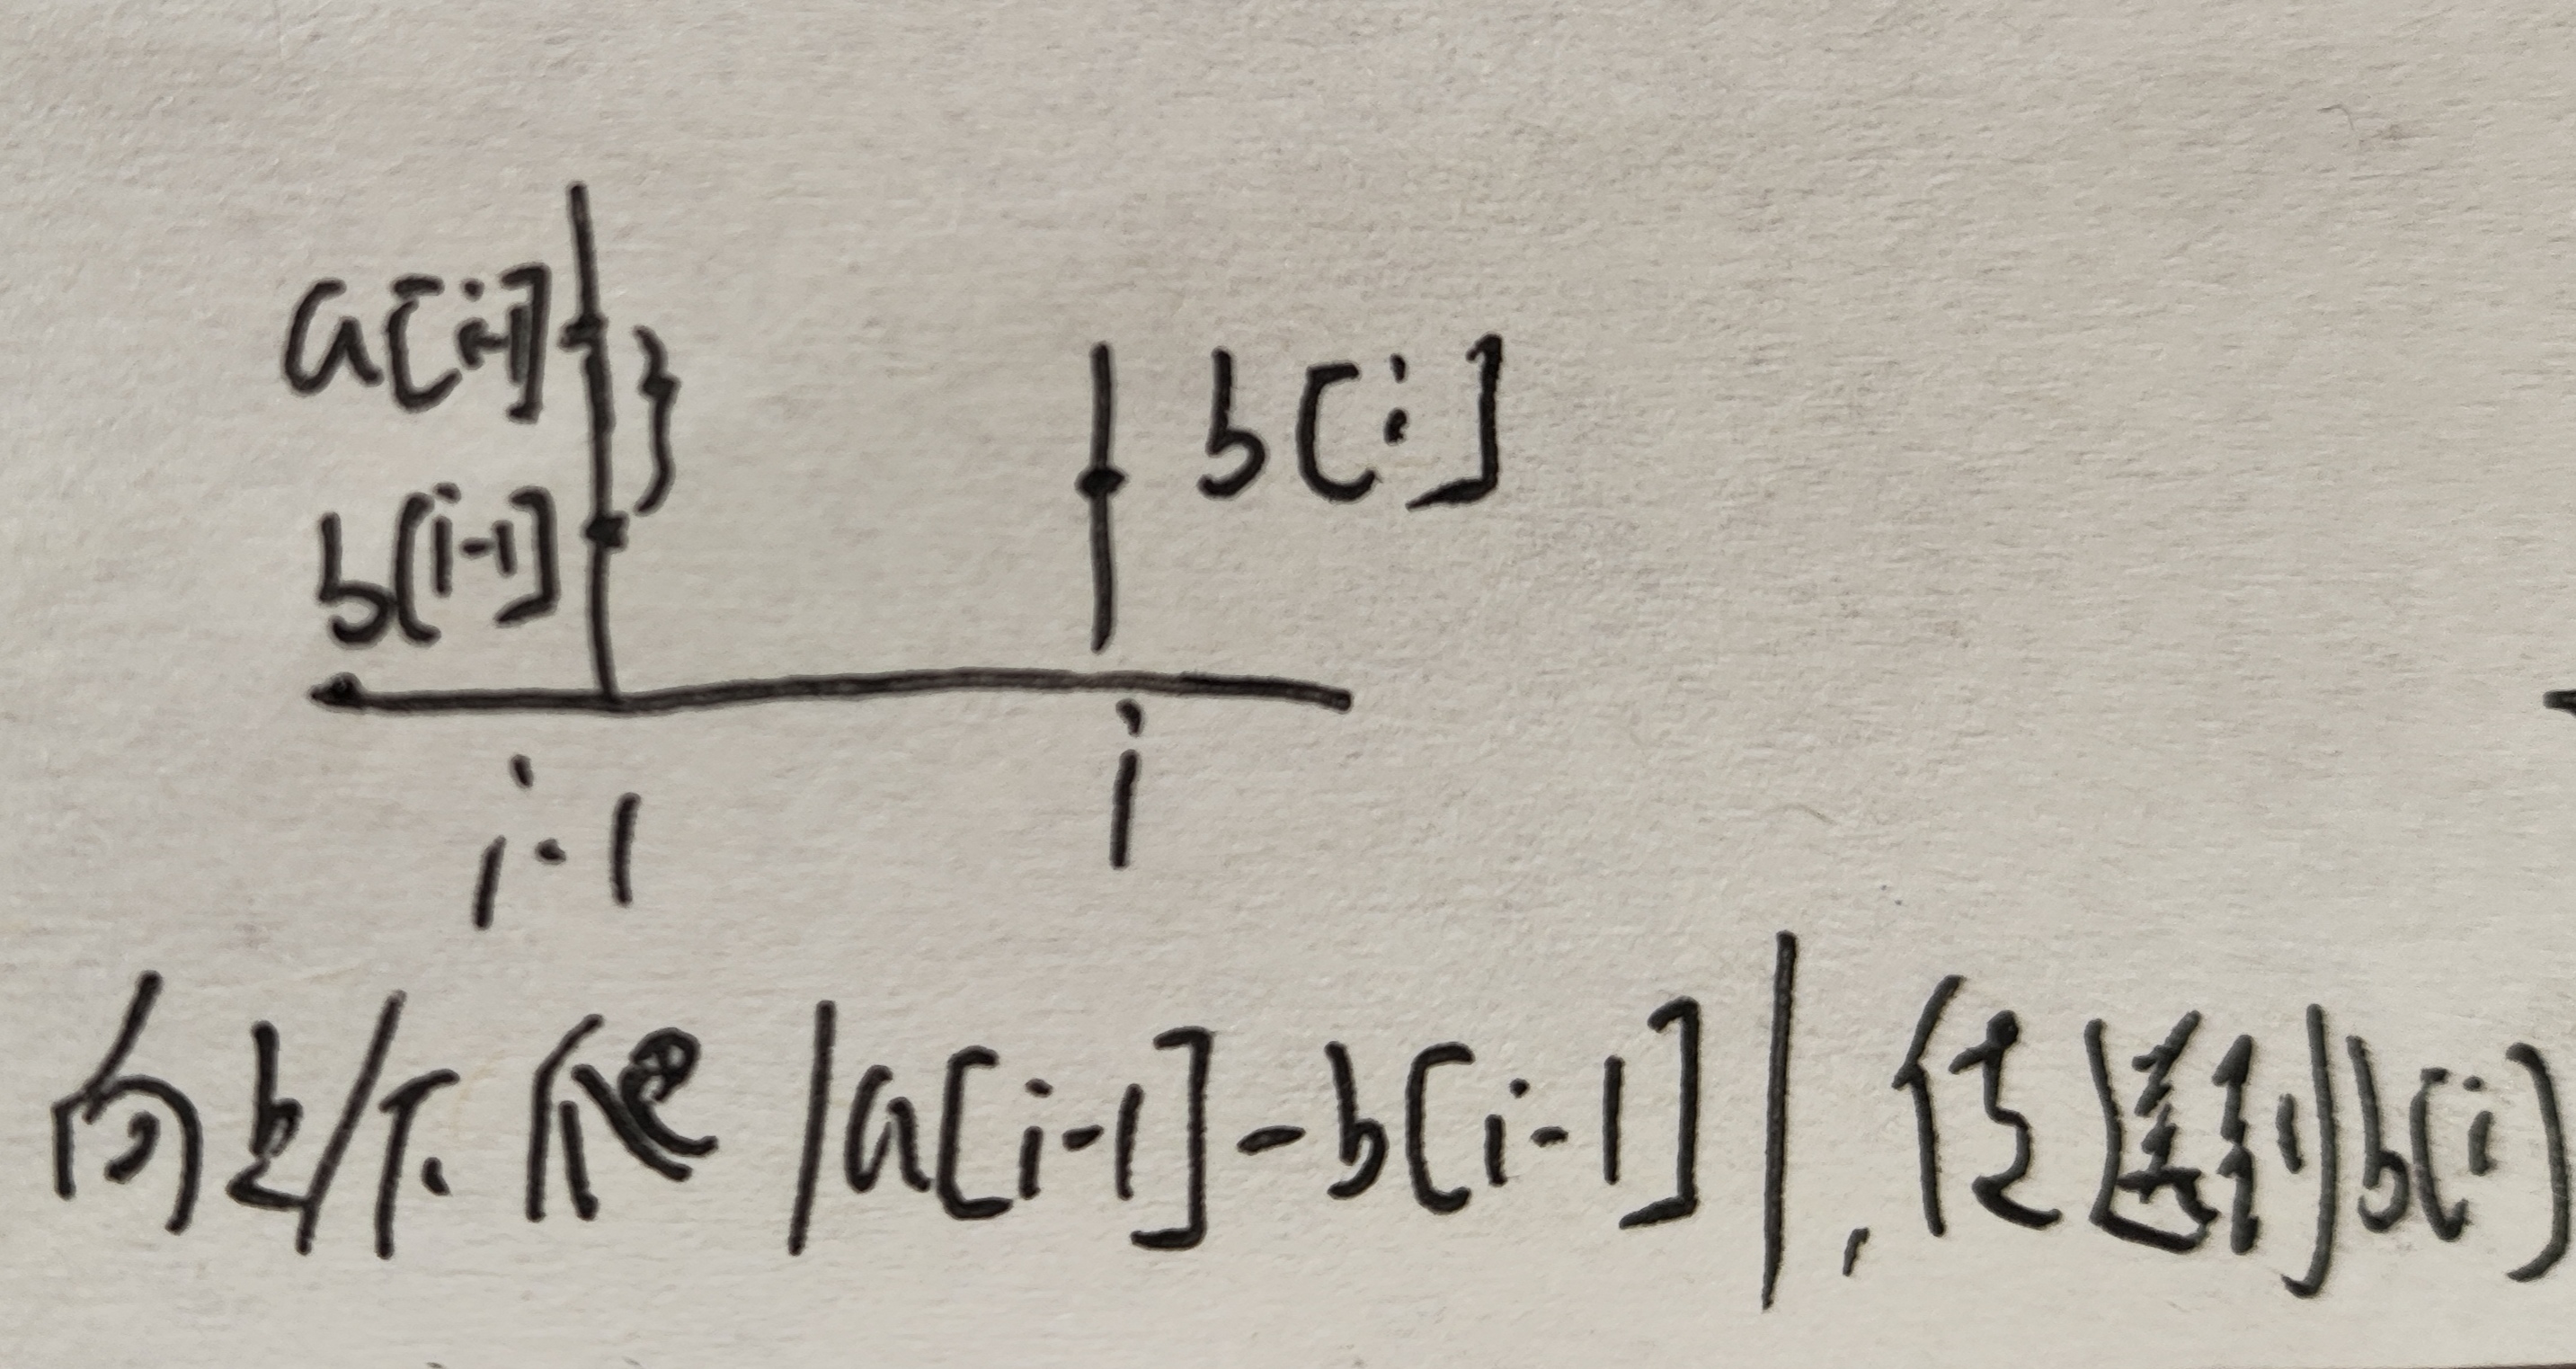 a[i-1]
b[i]
b[i-1]
i-1
i
向上/下爬 |a[i-1]-b[i-1]|, 传送到b[i]